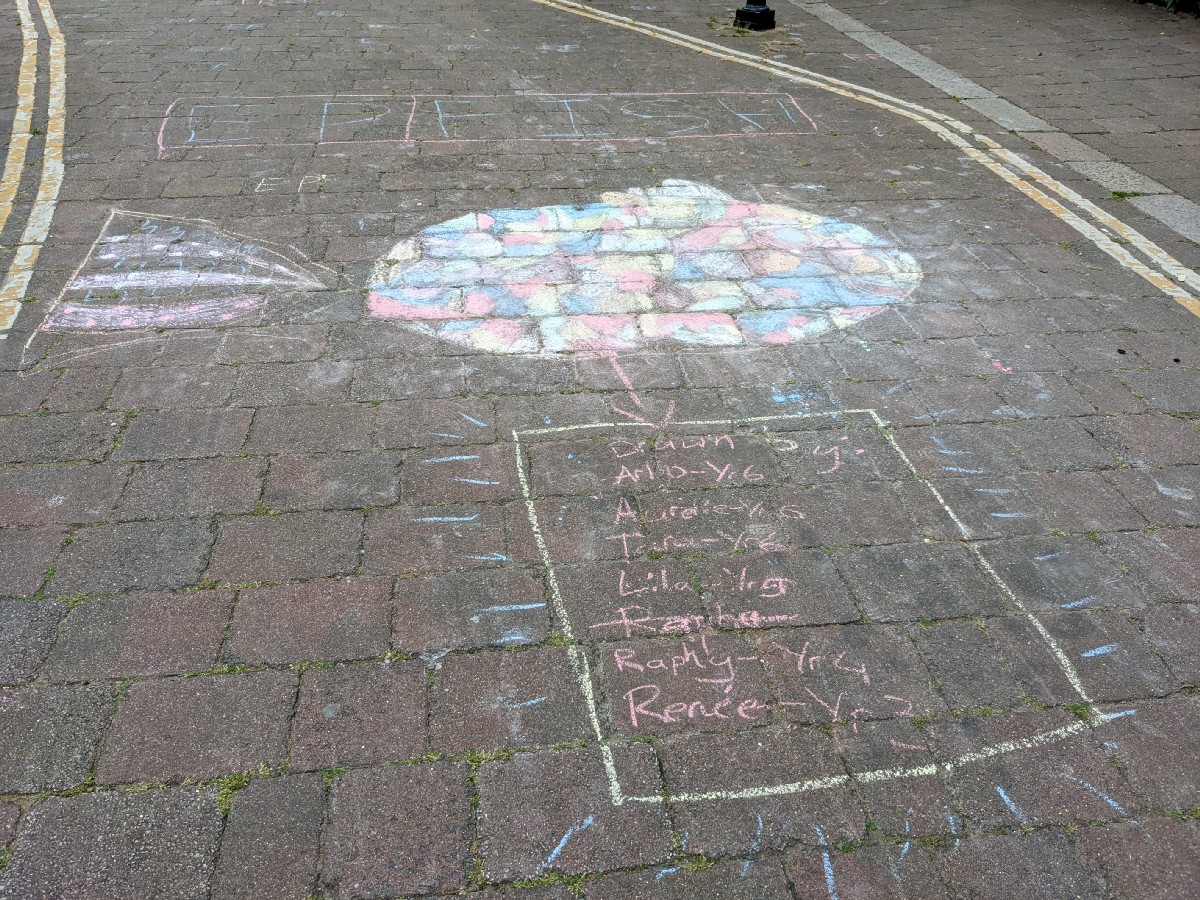 EP FISH
EP
Drawn By:
Arlo-Yr6
Aurelie-Yr6
Tara-Yr6
Lila-Yr5
Raphy-Yr4
Renée-Yr2